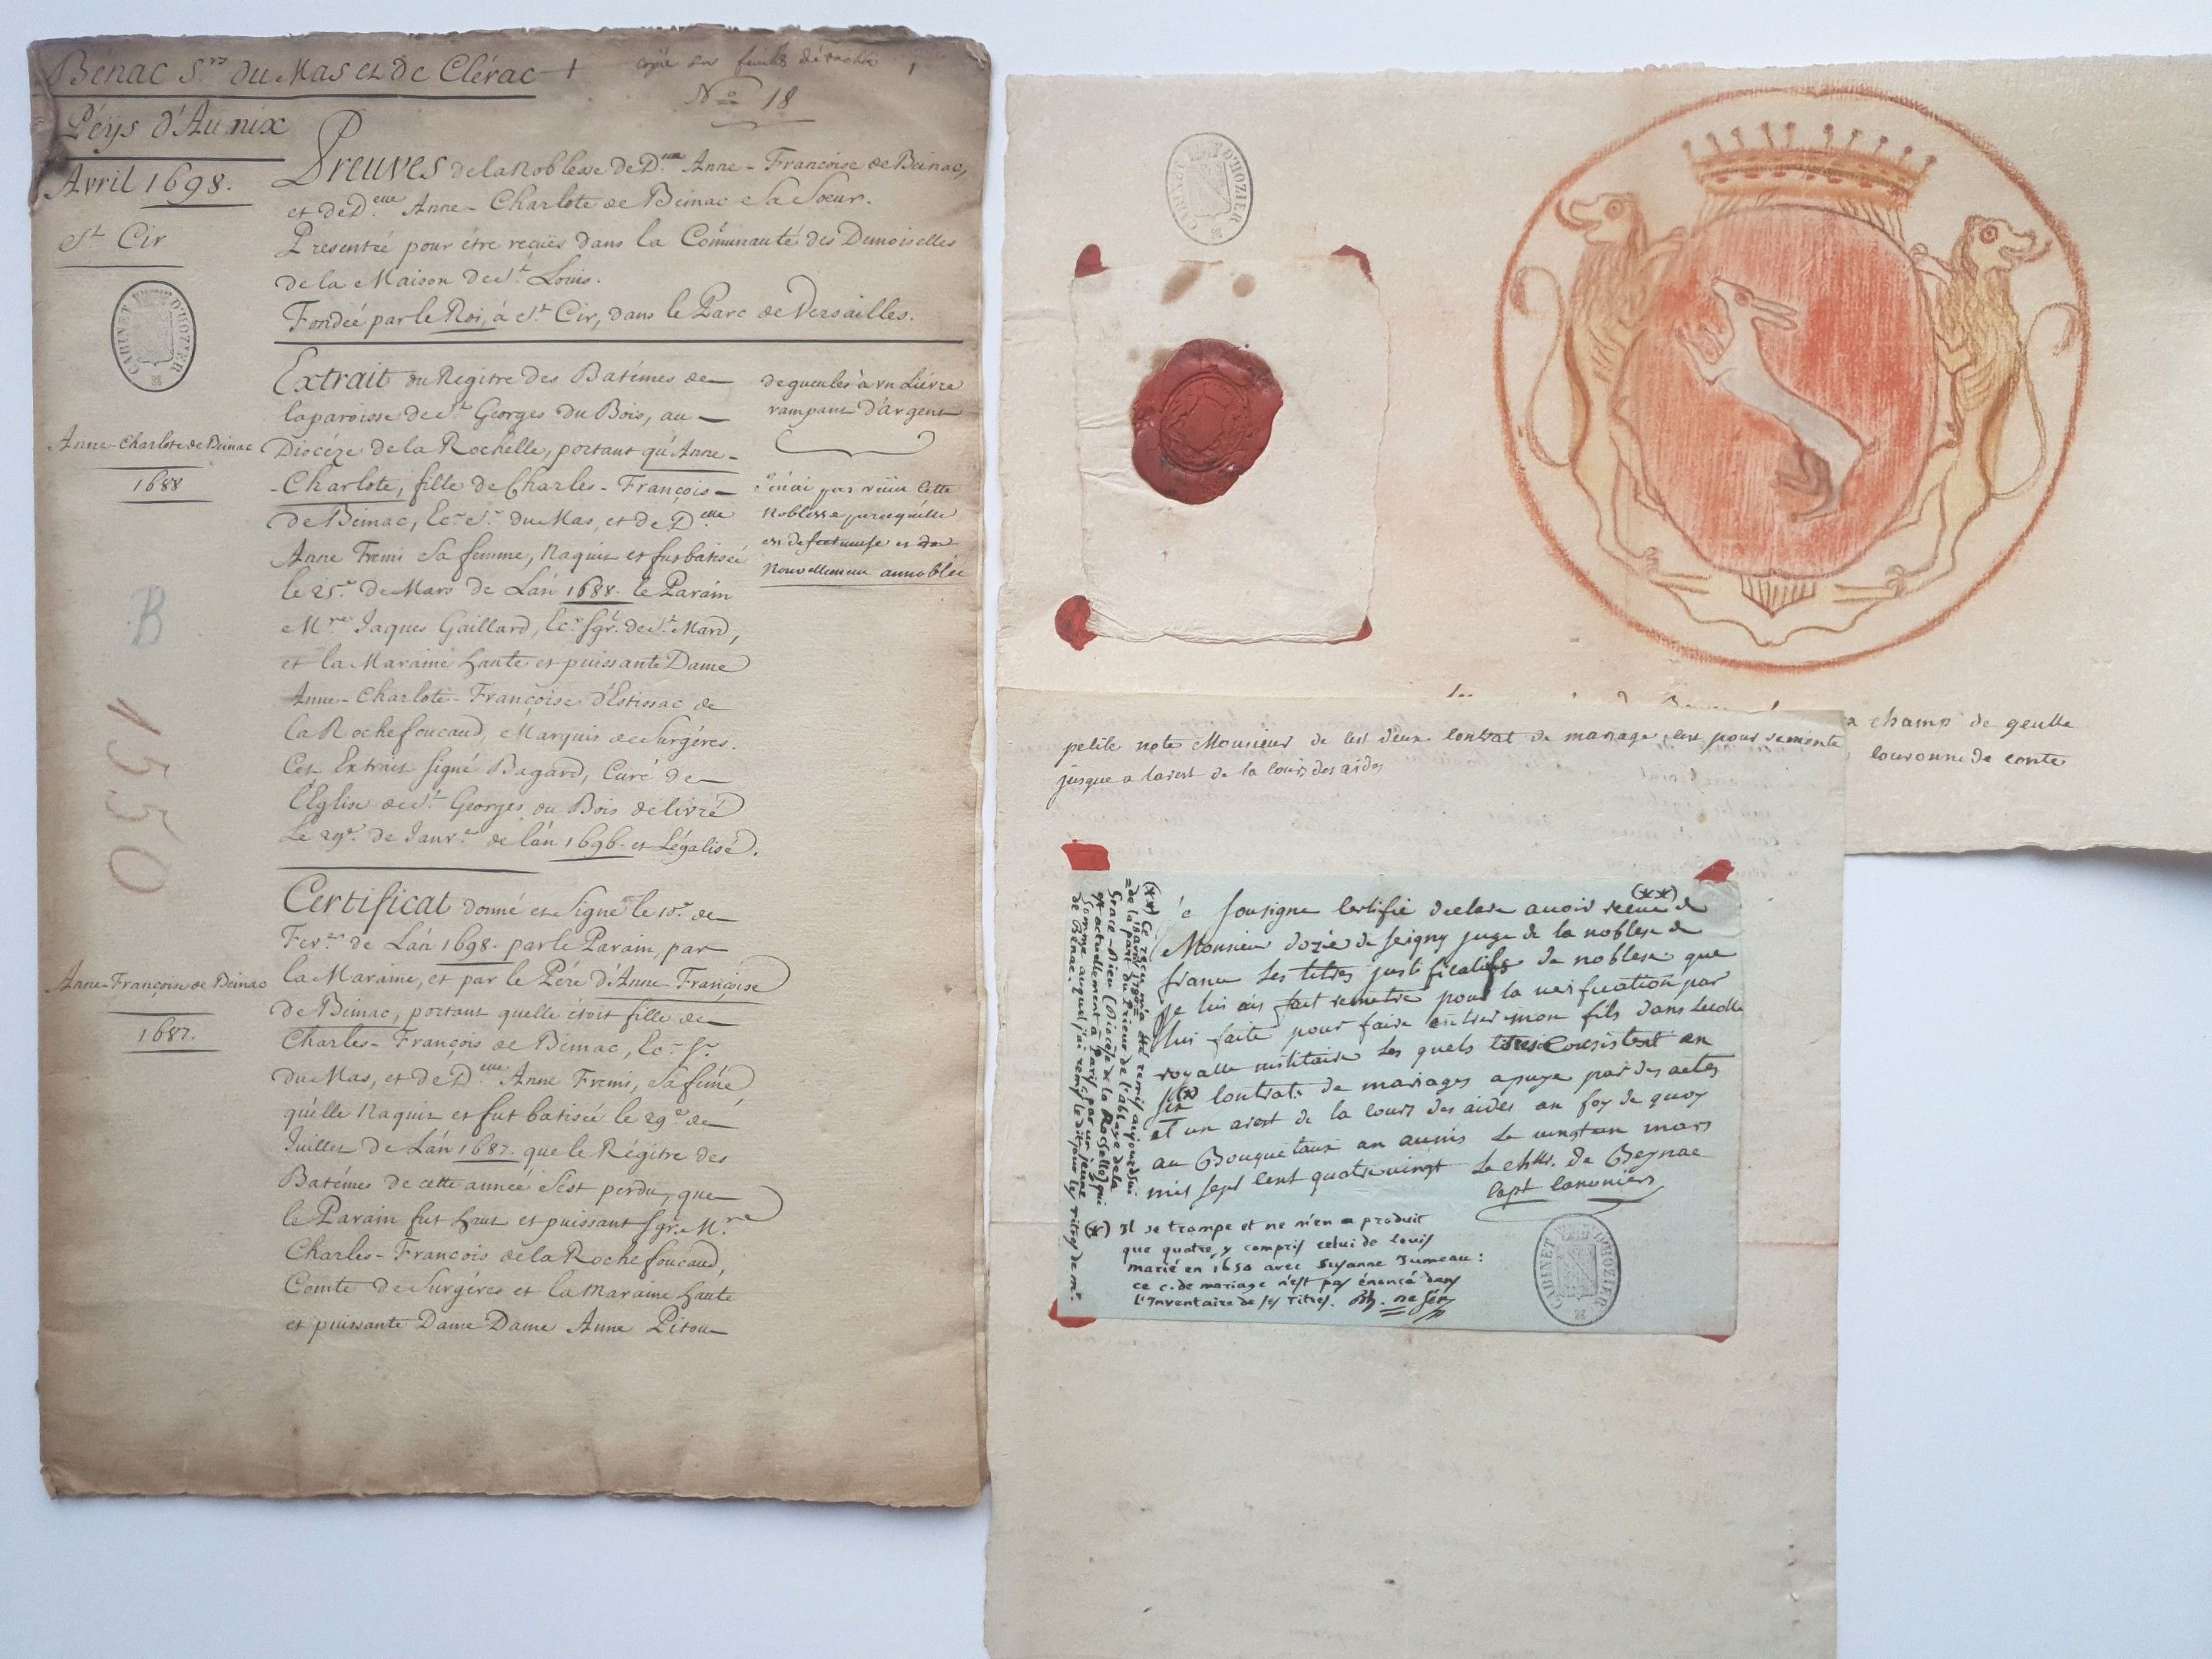 Bénac S.rs du Mas et de Clérac
copie en feuille détachée
N.o 18
Péys d'Aunix
Avril 1698.
St Cir
CABINET D'HOZIER
Preuves de la Noblesse de D.elle Anne-Francoise de Beinac,
et de D.elle Anne-Charlote de Beinac Sa Soeur.
Presentée pour étre reçües dans la Communauté des Demoiselles
de la Maison de St. Louis.
Fondée par le Roi, à St. Cir, dans le Parc de Versailles.
Anne-Charlote de Beinac
1688
Extrait du Regitre des Batémes de
la paroisse de St. Georges du Bois, au
Diocéze de la Rochelle, portant qu'Anne-
-Charlote, fille de Charles-François
de Beinac, Ec.r S.r du Mas, et de D.elle
Anne Fremi Sa femme, Naquit et fut batisée
le 25.e de Mars de L'an 1688. le Parain
M.re Jaques Gaillard, Ec.r Sgr. de St. Mard,
et la Maraine haute et puissante Dame
Anne-Charlote-Françoise d'Estissac de
la Rochefoucaud, Marquis de Surgéres.
Cet Extrait signé Bagard, Curé de
l'Eglise de St. Georges du Bois délivré
Le 29.e de Janv.er de l'an 1696. et Légalisé.
de gueules à un Liévre
rampant d'argent
J'enai pas recüu cette
Noblesse parcequ'elle
est defectueuse et
Nouvellement annoblie
B
1550
Anne-Françoise de Beinac
1687.
Certificat donné et Signé le 10.e de
Fev.er de L'an 1698. par le Parain, par
la Maraine, et par le Pére d'Anne-Françoise
de Beinac, portant quelle étoit fille de
Charles-François de Beinac, Ec.r S.r
du Mas, et de D.elle Anne Fremi, Sa féme,
qu'elle Naquit et fut batisée le 29.e de
Juillet de L'an 1687. que le Régitre des
Batémes de cette année s'est perdu, que
le Parain fut haut et puissant Sgr. M.re
Charles-François de la Rochefoucaud,
Comte de Surgéres et la Maraine haute
et puissante Dame Dame Anne Pitou
CABINET D'HOZIER
champ de geulle
couronne de conte
petite note Monsieur de les deux contrat de mariage pour remonte
jusque a larest de la cour des aides
(**)
Je sousigne certifie declare avoir recue de
Monsieur dozie de serigny juge de la noblesse de
france les titres justificatifs de noblesse que
je lui ais fait remetre pour la verification par
lui faite pour faire entrer mon fils dans lecolle
royalle militaire les quels titres Consistent en
six (*) contrats de mariages apuye par des actes
et un arest de la cour des aides an foy de quoy
au Bouquetaux an aunis Le vingt un mars
mil sept cent quatrevingt Le chlr. de Beynac
capt canoniers
(*) Il se trompe et ne m'en a produit
que quatre, y compris celui de Louis
marié en 1650 avec Susanne Jumeau:
ce c. de mariage n'est pas énoncé dans
l'Inventaire de ses Titres. D'h. de Sér.
(**) Ce reçu m'a été remis aujourd'hui
de la part du Prieur de l'abbaye de la
Grace-Dieu (Diocèse de la Rochelle) qui
est actuellement à Paris, par un jeune
homme auquel j'ai remis le dit jour les titres de Mr.
de Bénac.
CABINET D'HOZIER